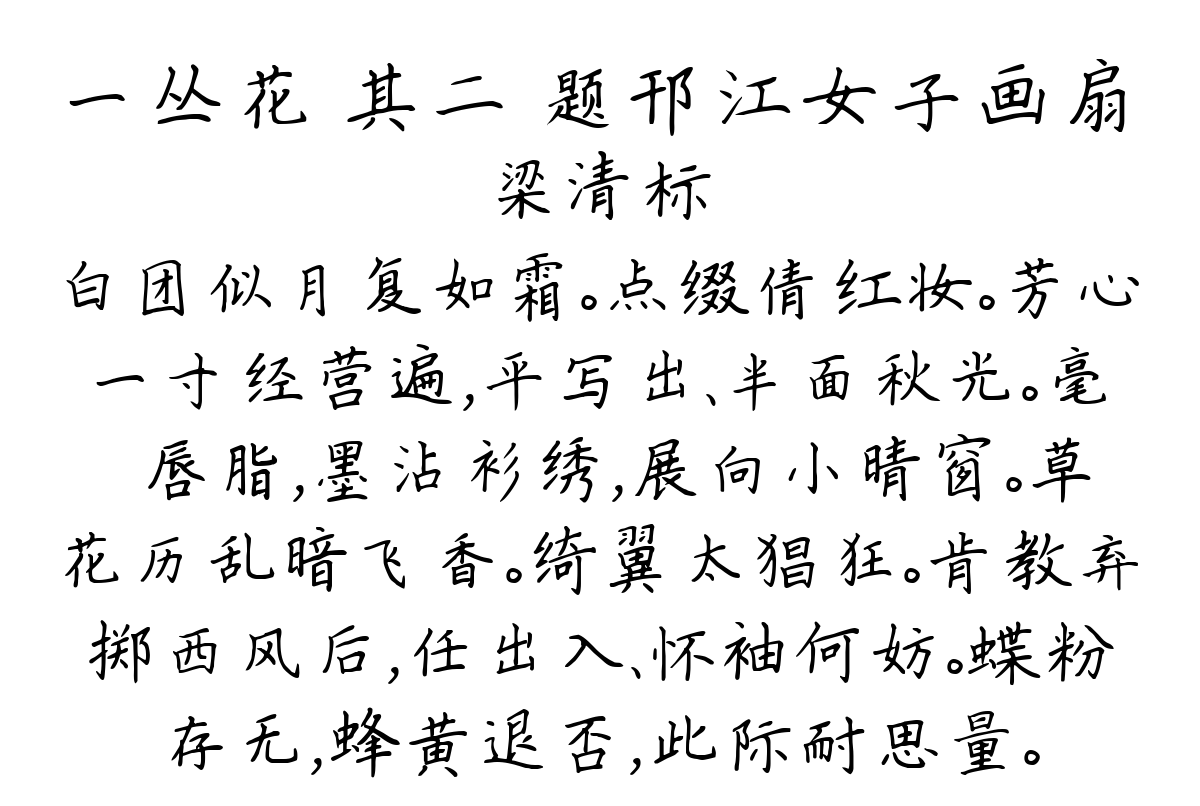 一丛花 其二 题邗江女子画扇
梁清标
白团似月复如霜。点缀倩红妆。芳心
一寸经营遍,平写出、半面秋光。毫
唇脂,墨沾衫绣,展向小晴窗。草
花历乱暗飞香。绮翼太猖狂。肯教弃
掷西风后,任出入、怀袖何妨。蝶粉
存无,蜂黄退否,此际耐思量。